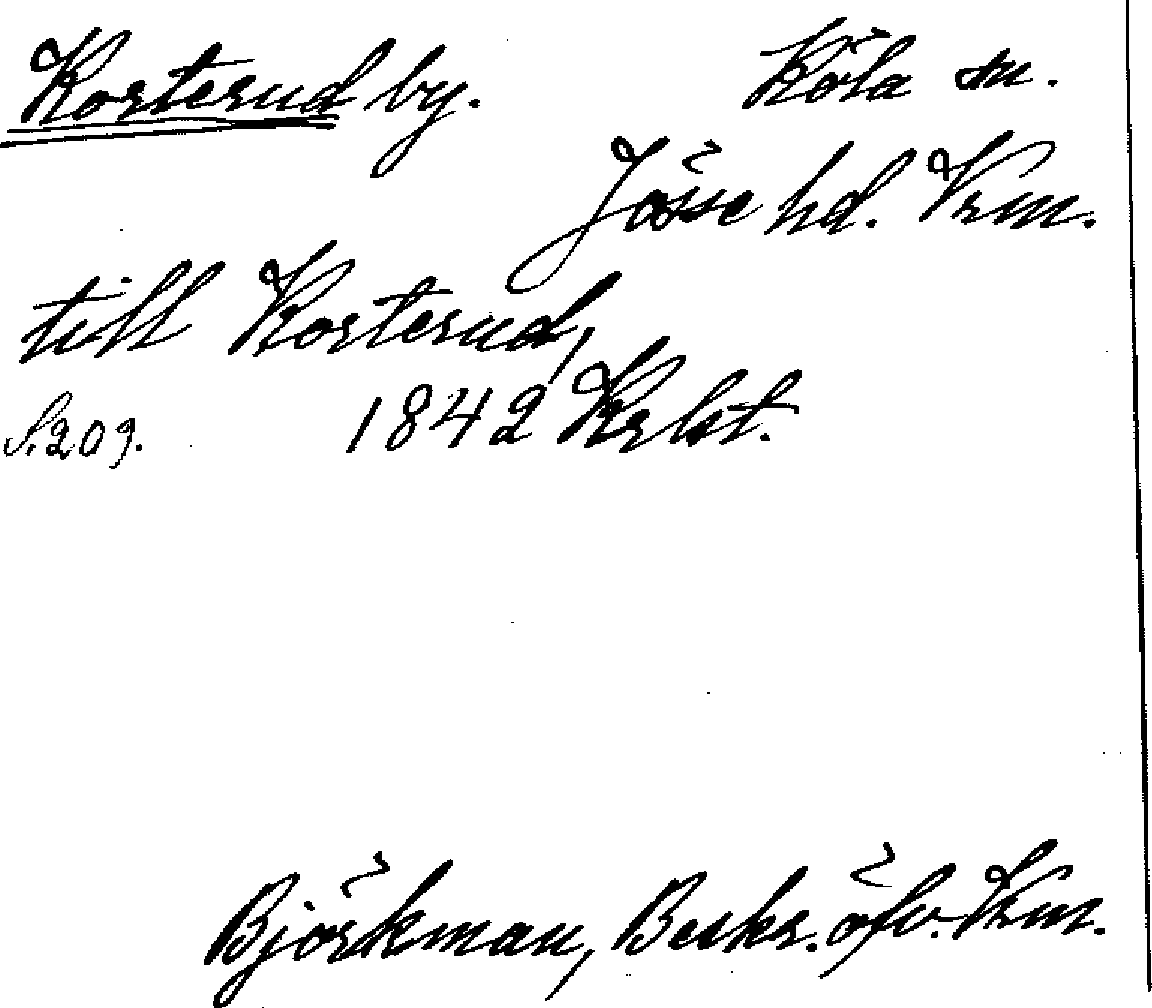 Korterud by. Köla sn.
Jösse hd. Vrm.
till Korterud,
S. 209. 1842 Krlst.
Björkman, Beskr. öfv. Vrm.